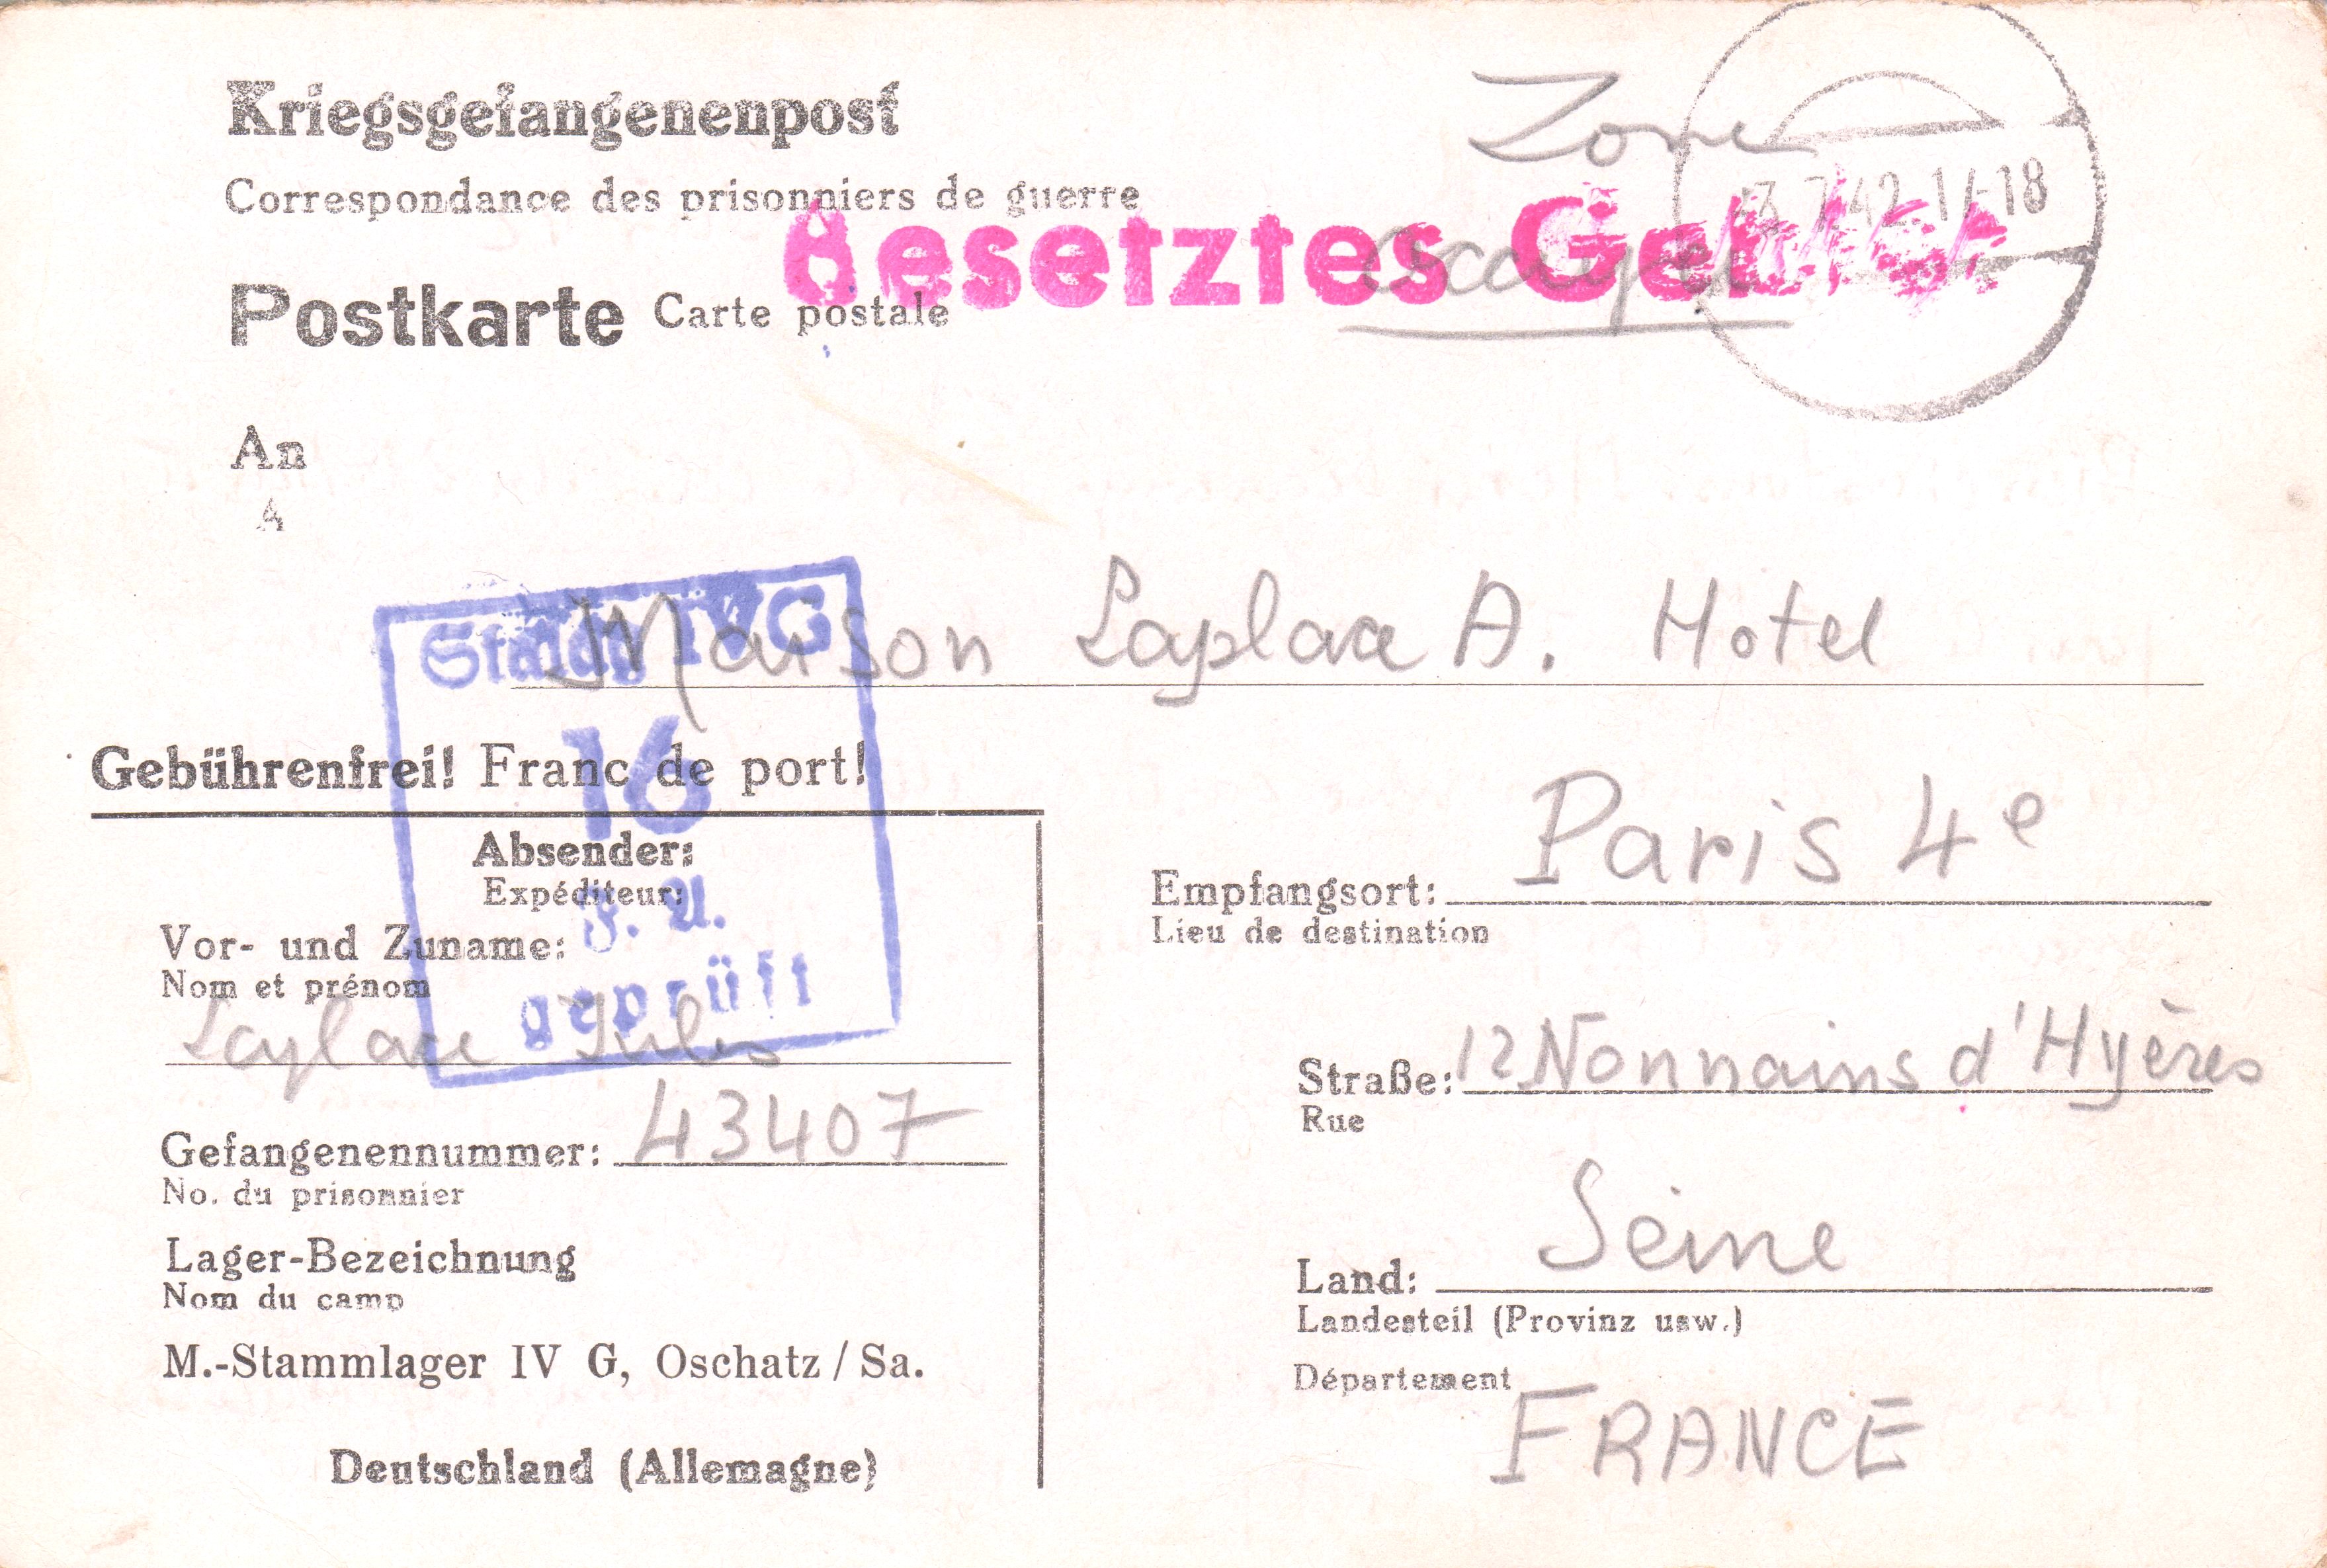 Kriegsgefangenenpost
Correspondance des prisonniers de guerre
Zone
occupée
Besetztes Gebiet
3.7.42-17-18
Postkarte Carte postale
An
A
Maison Laplace A. Hotel
Stalag IVG
16
geprüft
Gebührenfrei! Franc de port!
Absender:
Expéditeur:
Vor- und Zuname:
Nom et prénom
Laplace Jules
Gefangenennummer: 43407
No. du prisonnier
Lager-Bezeichnung
Nom du camp
M.-Stammlager IV G, Oschatz / Sa.
Deutschland (Allemagne)
Empfangsort: Paris 4e
Lieu de destination
Straße: 12 Nonnains d'Hyères
Rue
Land: Seine
Landesteil (Provinz usw.)
Département
FRANCE